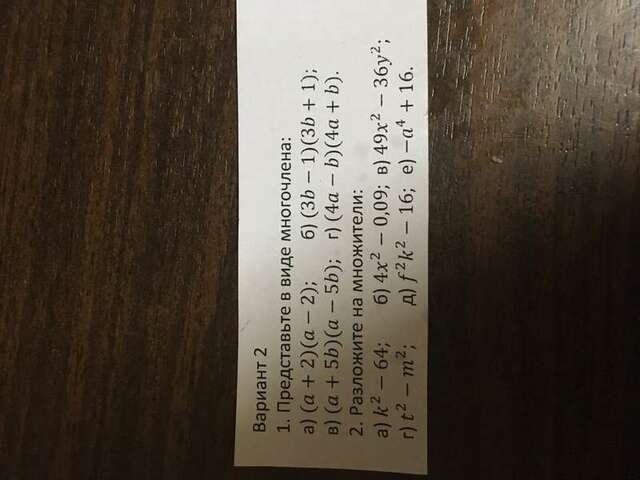 Вариант 2
1. Представьте в виде многочлена:
а) (a + 2)(a − 2); б) (3b − 1)(3b + 1);
в) (a + 5b)(a − 5b); г) (4a − b)(4a + b).
2. Разложите на множители:
а) k² − 64; б) 4x² − 0,09; в) 49x² − 36y²;
г) t² − m²; д) f²k² − 16; е) −a⁴ + 16.